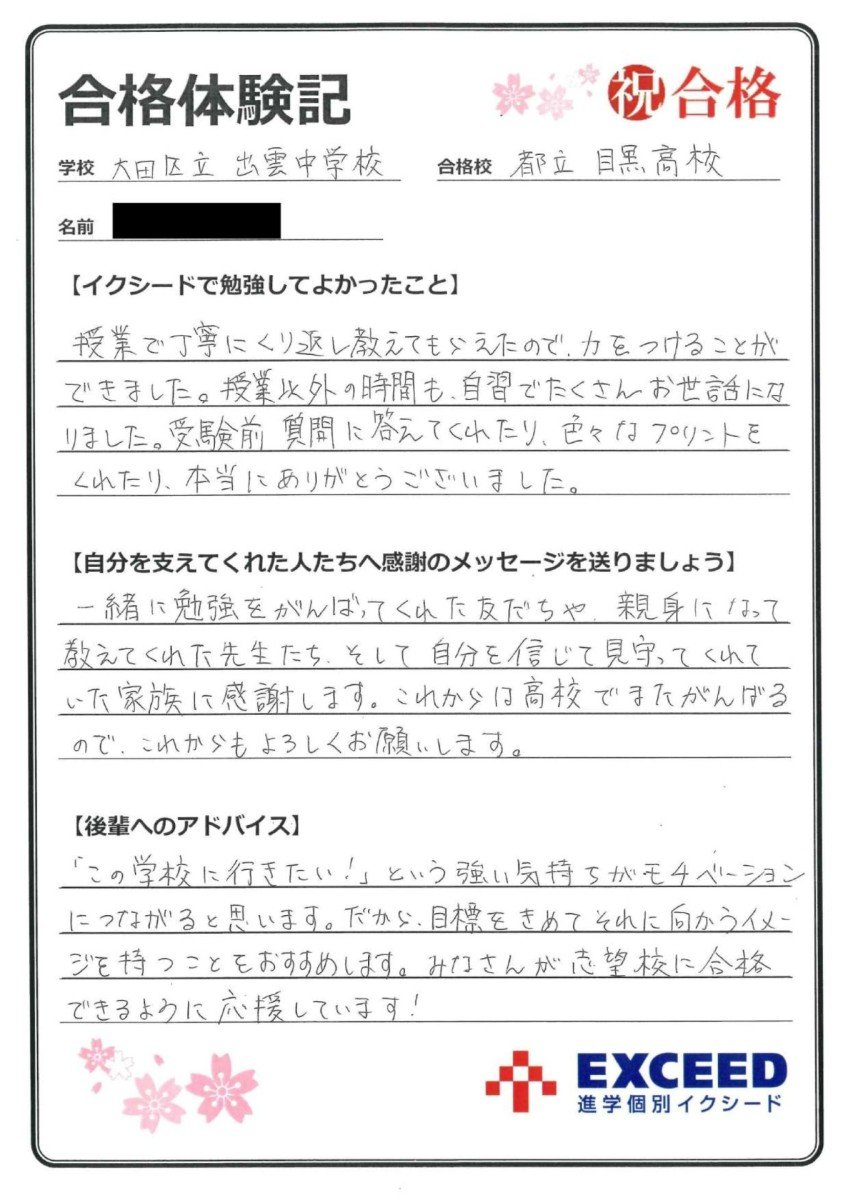 合格体験記
祝合格
学校 大田区立 出雲中学校
合格校 都立 目黒高校
名前
【イクシードで勉強してよかったこと】
授業で丁寧にくり返し教えてもらえたので、力をつけることが
できました。授業以外の時間も、自習でたくさんお世話にな
りました。受験前 質問に答えてくれたり、色々なプリントを
くれたり、本当にありがとうございました。
【自分を支えてくれた人たちへ感謝のメッセージを送りましょう】
一緒に勉強をがんばってくれた友だちや、親身になって
教えてくれた先生たち、そして自分を信じて見守ってくれて
いた家族に感謝します。これからは高校でまたがんばる
ので、これからもよろしくお願いします。
【後輩へのアドバイス】
「この学校に行きたい!」という強い気持ちがモチベーション
につながると思います。だから、目標をきめてそれに向かうイメー
ジを持つことをおすすめします。みなさんが志望校に合格
できるように応援しています!
EXCEED
進学個別イクシード